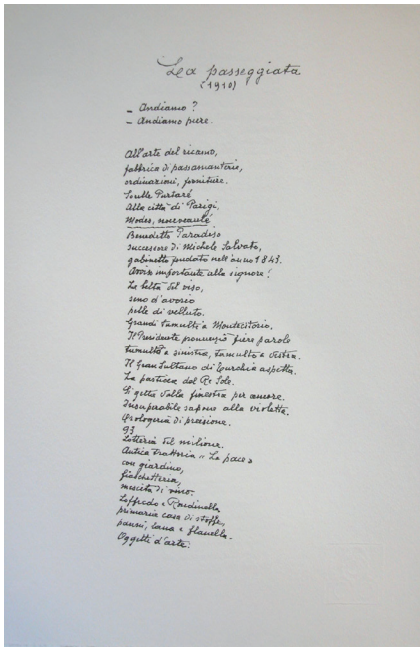 La passeggiata
(1910)
- Andiamo?
- Andiamo pure.
All'arte del ricamo,
fabbrica di passamanterie,
ordinazioni, forniture.
Sorelle Purtaré
Alla città di Parigi,
Modes, nouveauté
Benedetto Paradiso
successore di Michele Salvato,
gabinetto fondato nell'anno 1843.
Avviso importante alle signore!
La beltà del viso,
seno d'avorio
pelle di velluto.
Grandi tumulti a Montecitorio.
Il Presidente pronunziò fiere parole
tumulto a sinistra, tumulto a destra.
Il Gran Sultano di Turchia aspetta.
La pasticca del Re Sole.
Si getta dalla finestra per amore.
Insuperabile sapone alla violetta.
Orologeria di precisione.
93
Lotteria del milione.
Antica trattoria "La pace"
con giardino,
fiaschetteria,
mescita di vino.
Loffredo e Rondinella
primaria casa di stoffe,
panni, lana e flanella.
Oggetti d'arte.